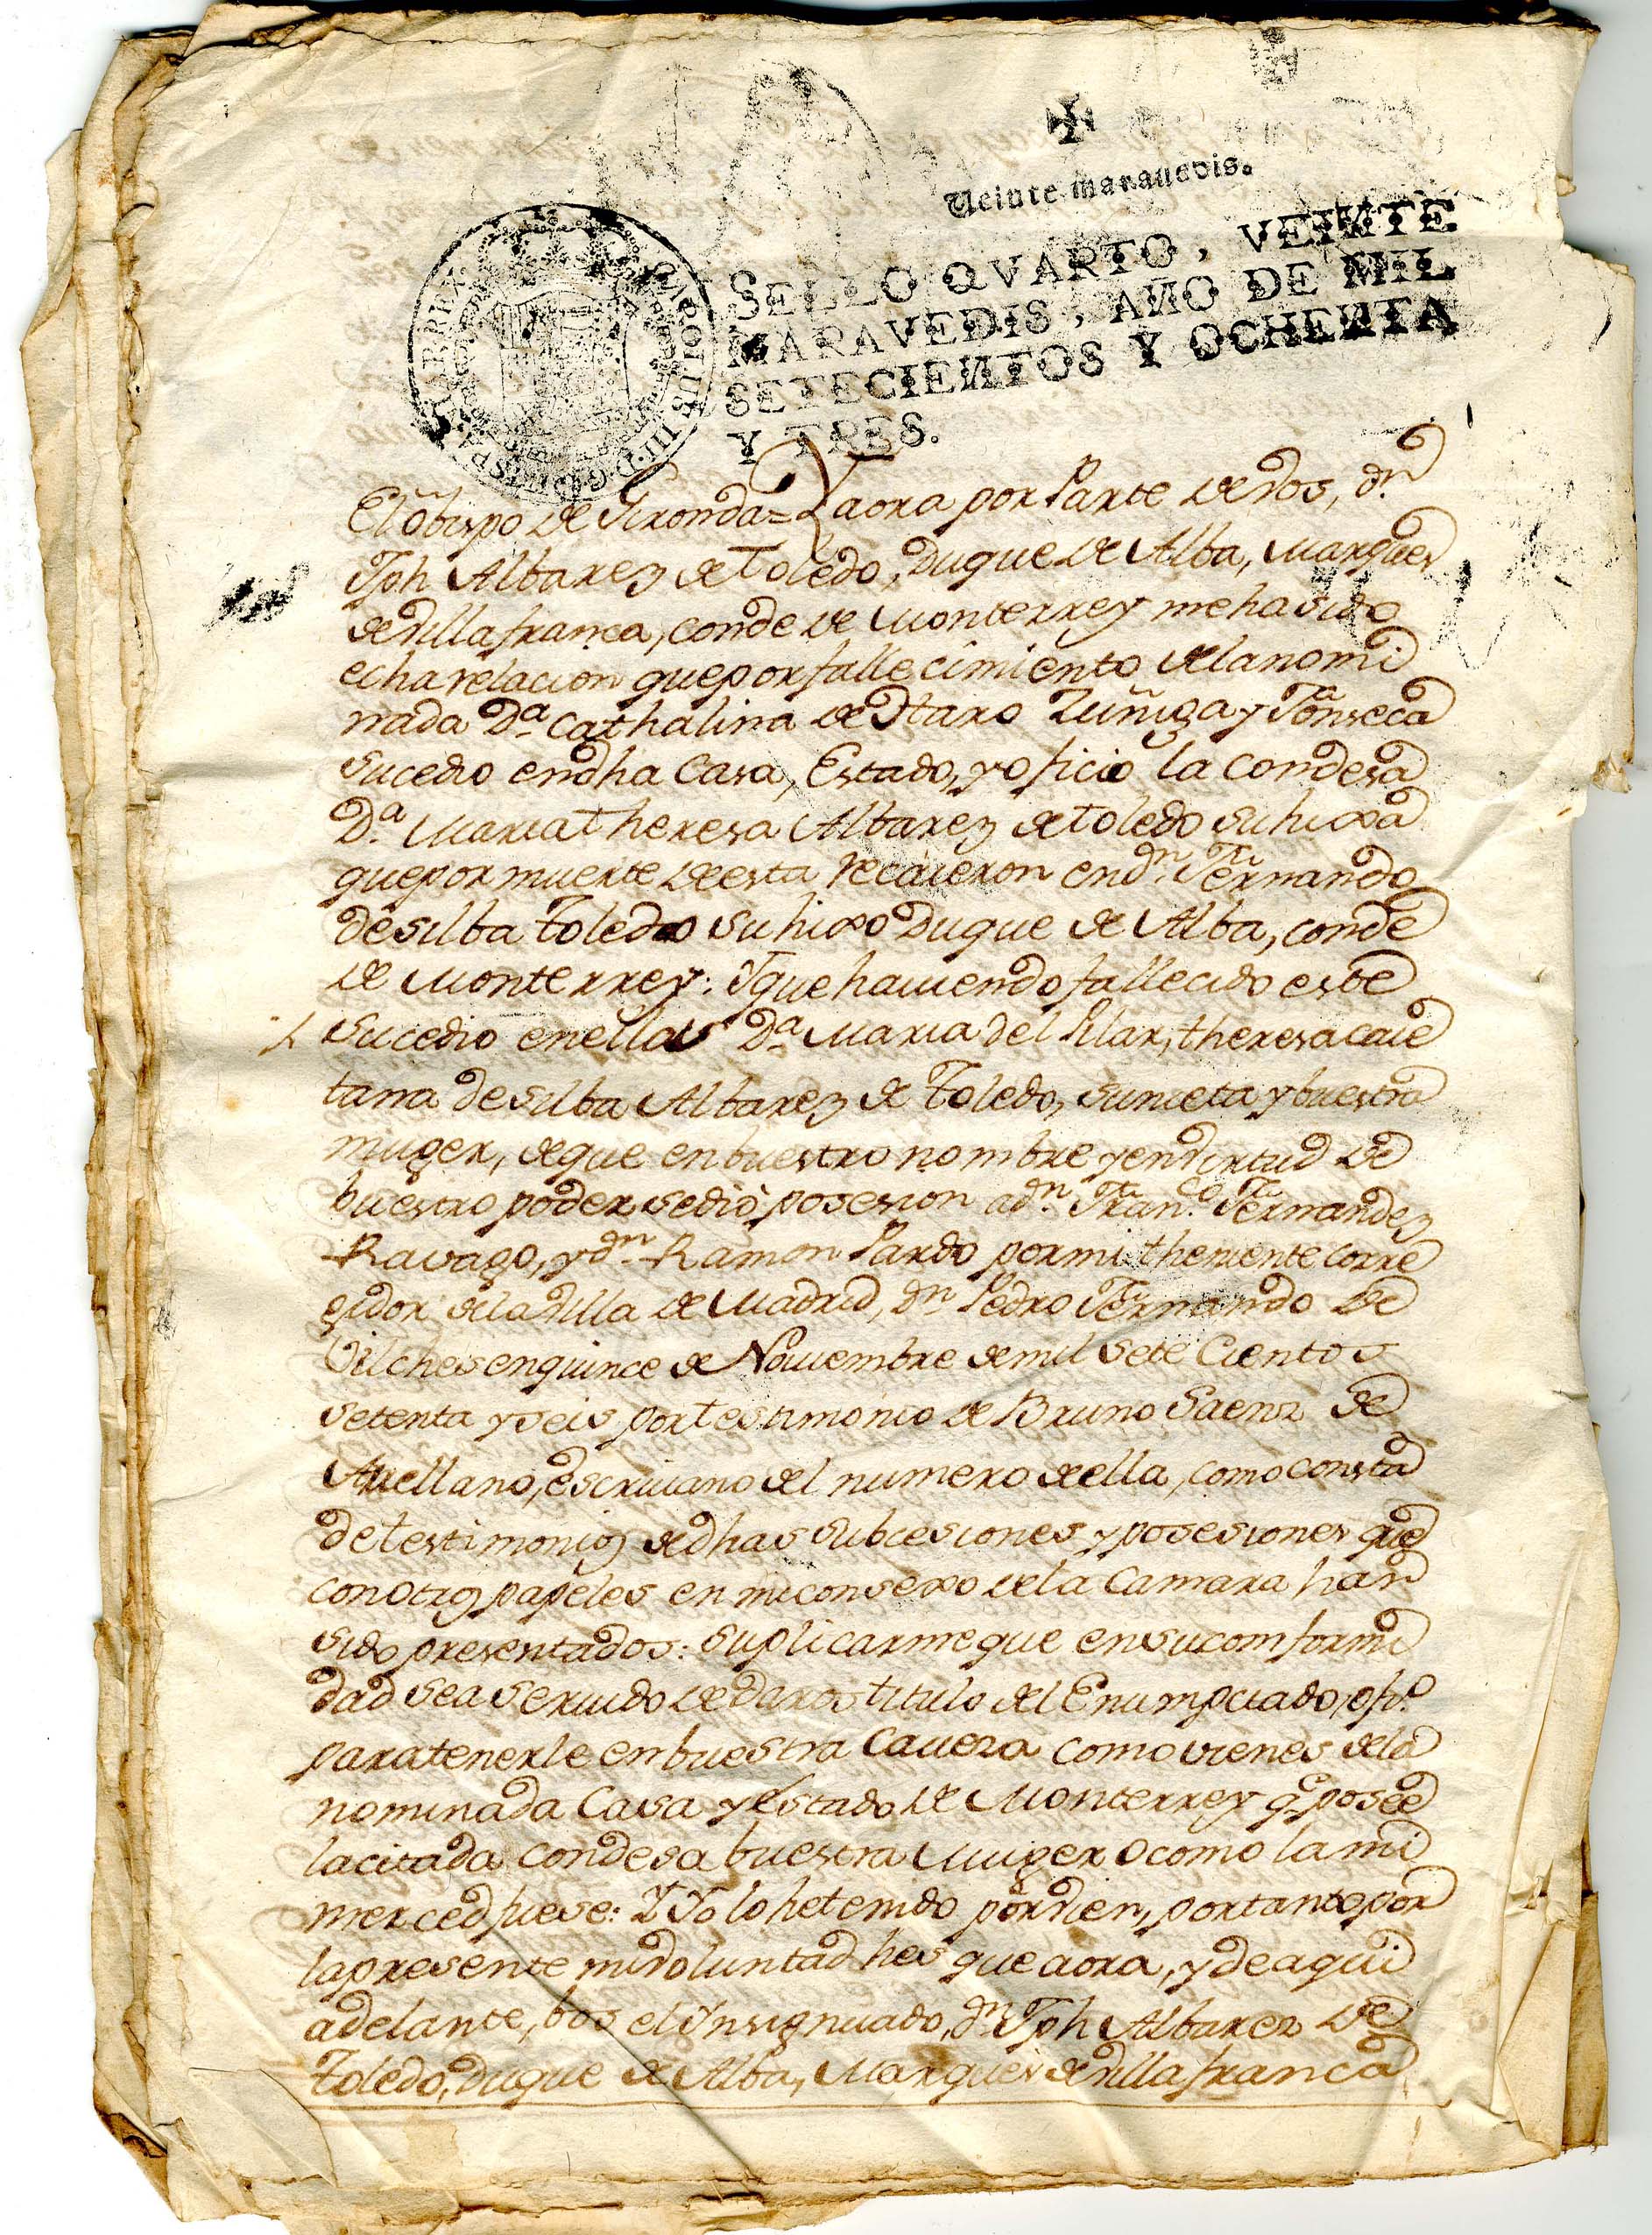 Veinte maravedis.
SELLO QVARTO, VEINTE
MARAVEDIS, AÑO DE MIL
SETECIENTOS Y OCHENTA
Y TRES.
CAROLUS III D.G. HISP REX
El obispo de Gironda = Y aora por Parte de vos, dn.
Jph Albarez de Toledo, Duque de Alba, Marques
de villa franca, conde de Monterrey me ha sido
echa relacion que por fallecimiento de la nomi
nada Da. Cathalina de Haro Zuñiga y Fonseca
Sucedio en dha Casa, Estado, y oficio la Condesa
Da. Maria theresa Albarez de toledo su hixa
que por muerte de esta recaieron en dn. Fernando
de silba toledo su hixo Duque de Alba, conde
de Monterrey: Y que haviendo fallecido este
Sucedio en ellas Da. Maria del Pilar, theresa caie
tana de silba Albarez de toledo, su nieta y buestra
muger, de que en buestro nombre y en virtud de
buestro poder se dió posesion a dn. Franco. Fernandez
Ravago, y dn. Ramon Pardo por mi theniente corre
gidor de la villa de Madrid, dn Pedro Fernando de
Vilches en quince de Noviembre de mil sete Cientos
setenta y seis por testimonio de Bruno Saenz de
Avellano, escrivano del numero de ella, como consta
de testimonios de dhas subcesiones y posesiones que
con otros papeles en mi consexo de la Camara han
sido presentados: suplicarme que en su comformi
dad sea servido de daros titulo del Enumpciado ofo.
para tenerle en buestra Caveza como vienes de la
nominada Casa y estado de Monterrey qe. posee
la citada condesa buestra Muger o como la mi
merced fuese: Y Yo lo he tenido por vien, por tanto por
la presente mi voluntad hes que aora, y de aqui
adelante, bos el Ynsignuado, dn. Jph Albarez de
Toledo, Duque de Alba, Marques de villa franca